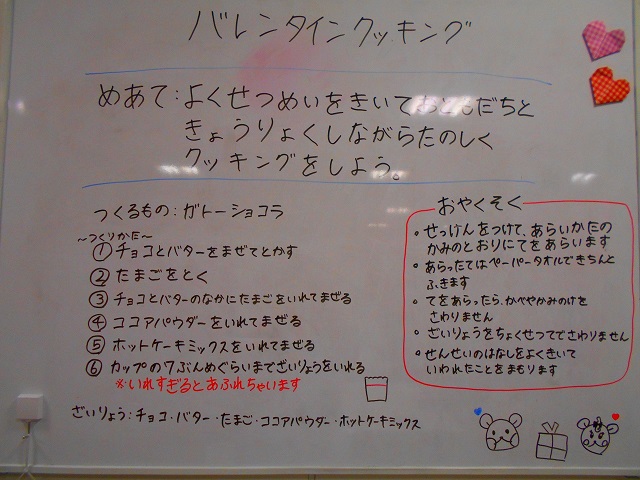 バレンタインクッキング
めあて：よくせつめいをきいておともだちと
きょうりょくしながらたのしく
クッキングをしよう。
つくるもの：ガトーショコラ
～つくりかた～
①チョコとバターをまぜてとかす
②たまごをとく
③チョコとバターのなかにたまごをいれてまぜる
④ココアパウダーをいれてまぜる
⑤ホットケーキミックスをいれてまぜる
⑥カップの7ぶんめぐらいまでざいりょうをいれる
※いれすぎるとあふれちゃいます
ざいりょう：チョコ・バター・たまご・ココアパウダー・ホットケーキミックス
おやくそく
・せっけんをつけて、あらいかたの
かみのとおりにてをあらいます
・あらったてはペーパータオルできちんと
ふきます
・てをあらったら、かべやかみのけを
さわりません
・ざいりょうをちょくせつてでさわりません
・せんせいのはなしをよくきいて
いわれたことをまもります